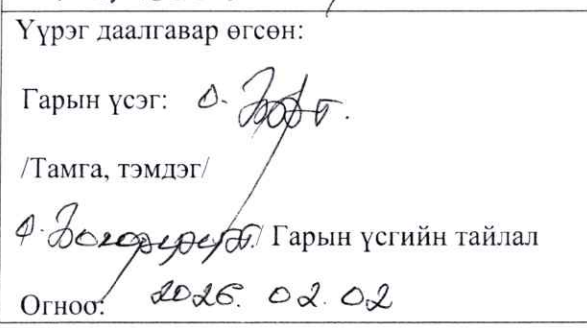 Үүрэг даалгавар өгсөн:
Гарын үсэг:
/Тамга, тэмдэг/
/ Гарын үсгийн тайлал
Огноо: 2026. 02.02